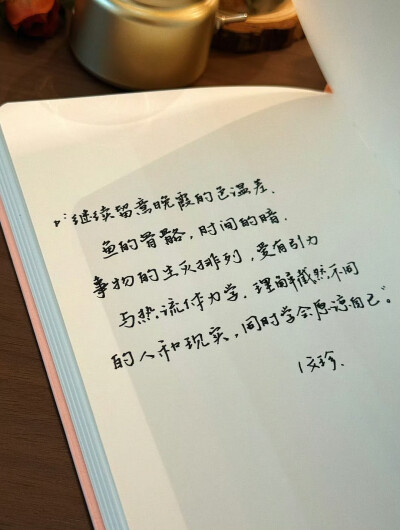 “继续留意晚霞的色温差、
鱼的骨骼，时间的暗.
事物的生灭排列，爱有引力
与热.流体力学.理解截然不同
的人和现实，同时学会原谅自己”。